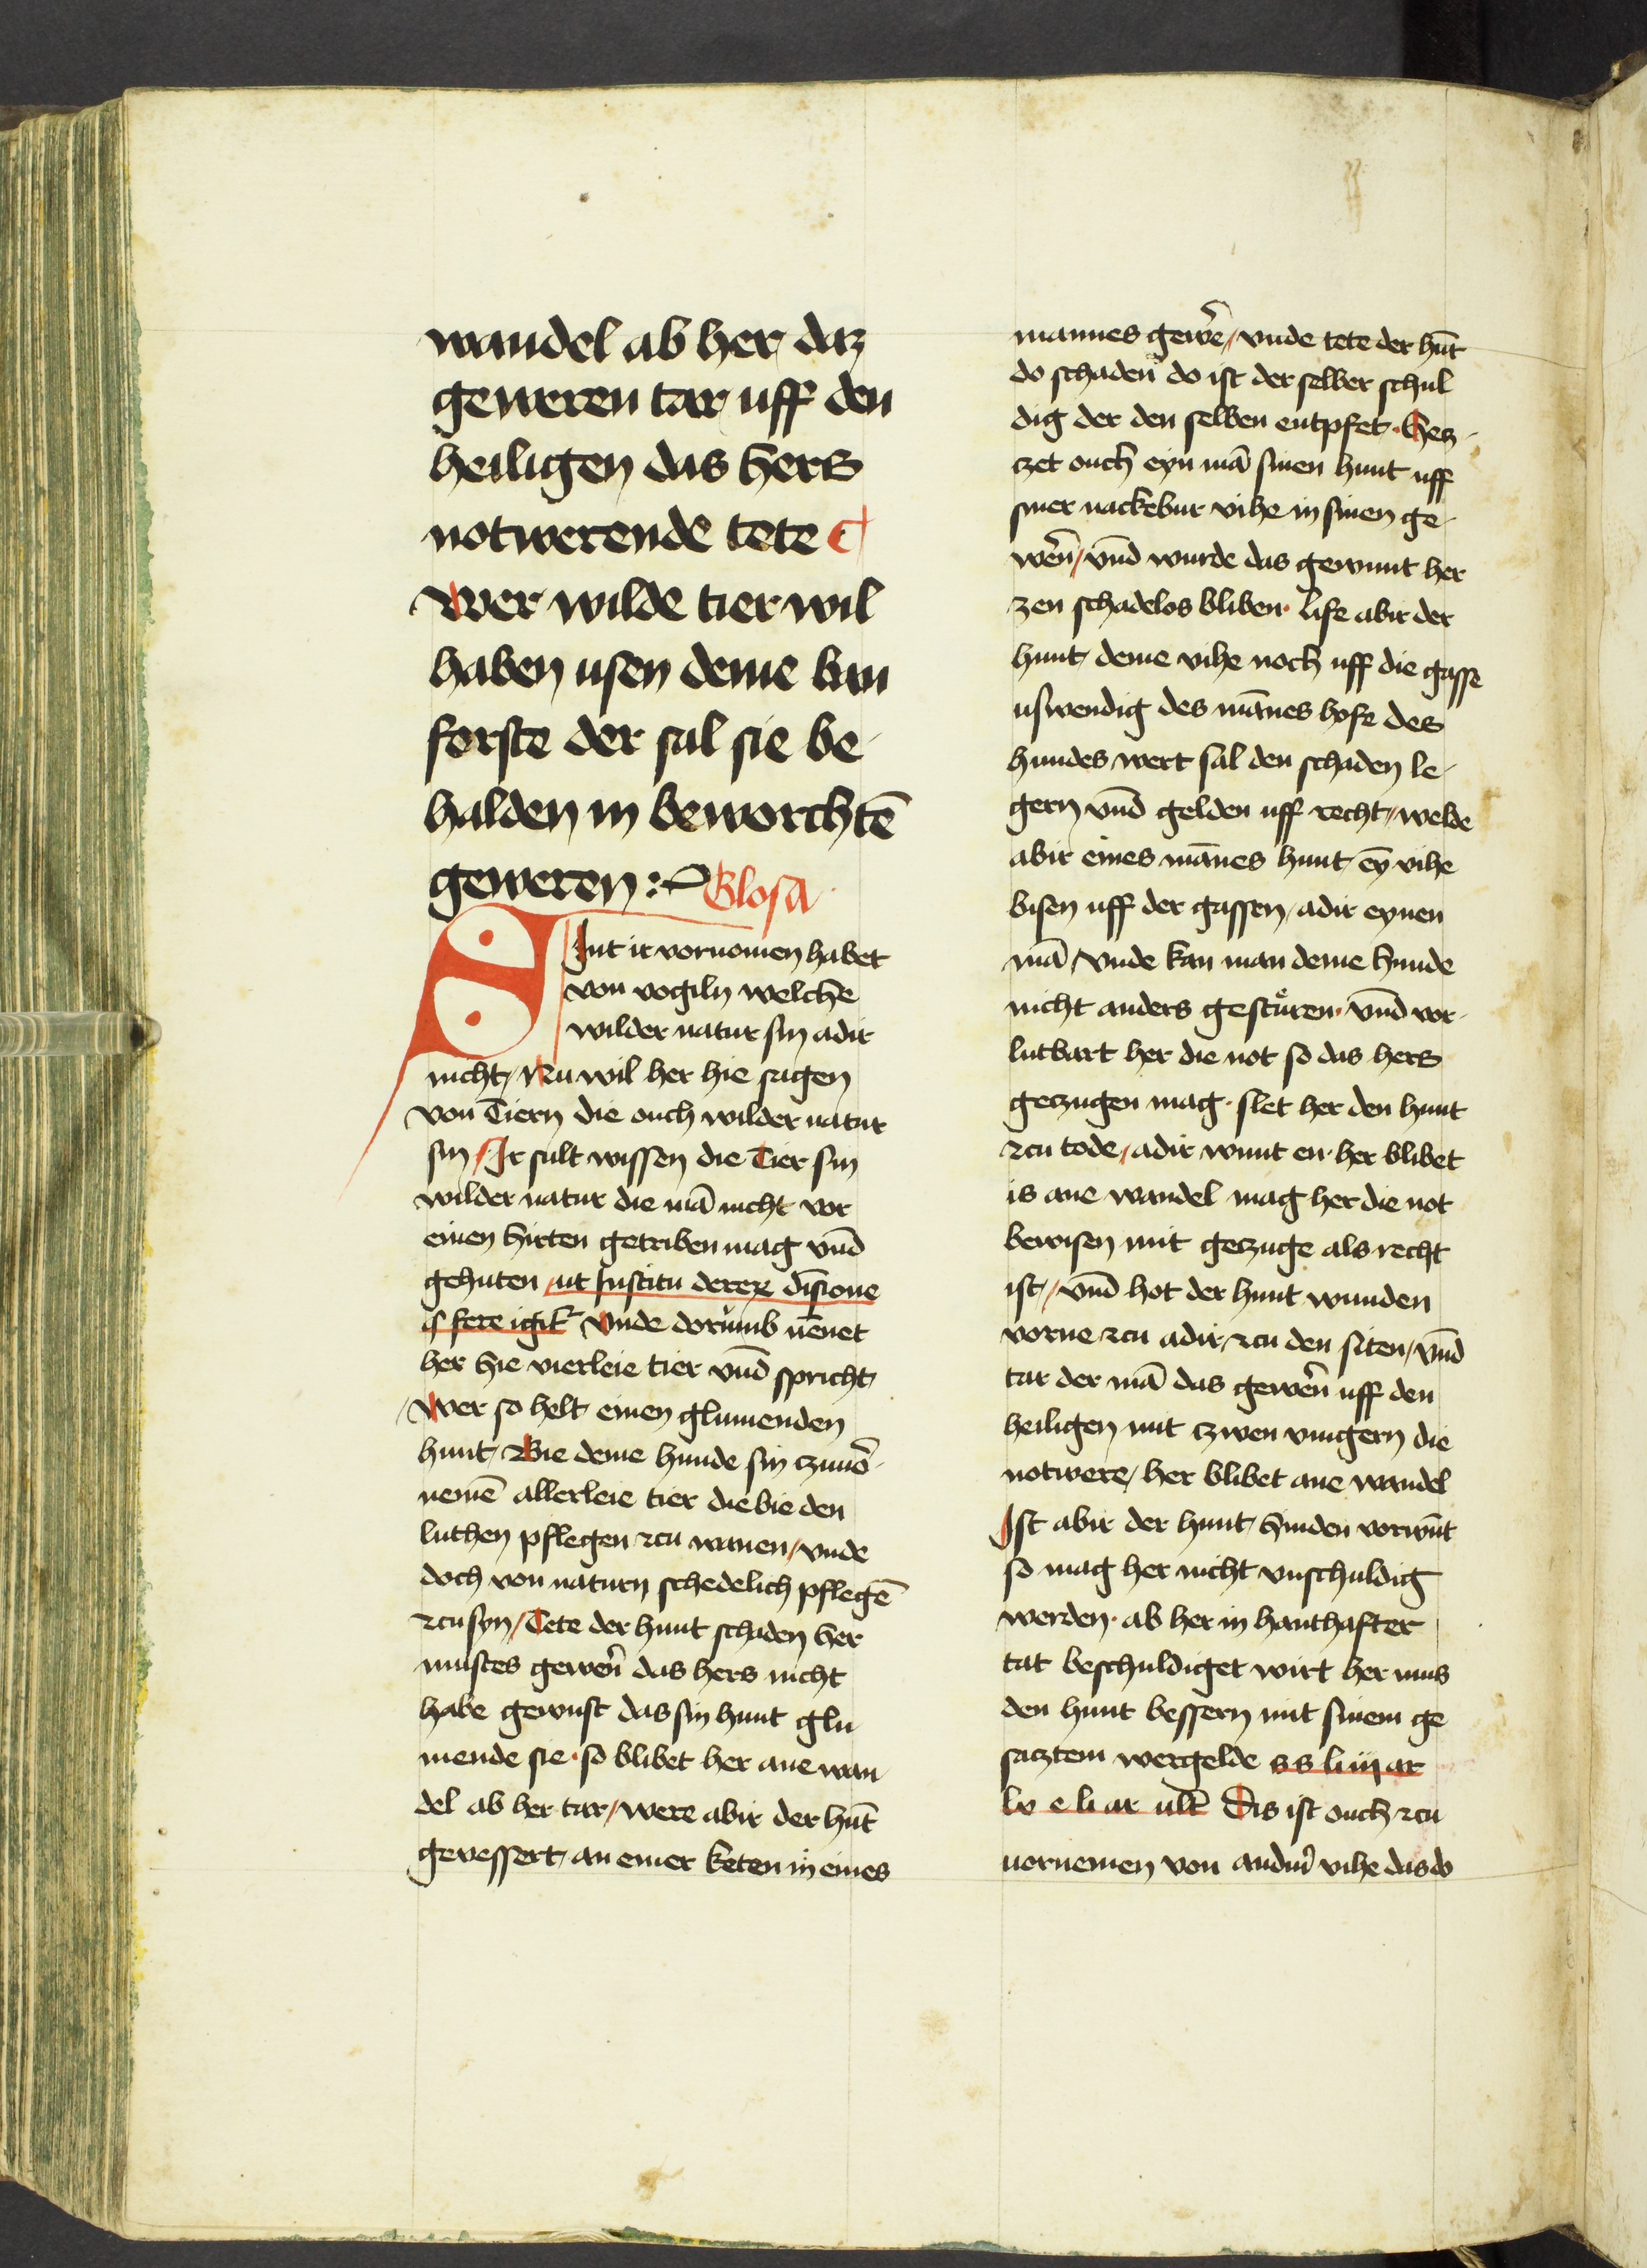 wandel ab her daz
geweren tar uff den
heiligen das hers
notwerende tete
Wer wilde tier wil
haben usen deme ban
forste der sal sie be
halden in beworchtē
geweren : Glosa
SInt ir vornomen habet
von vogiln welche
wilder natur sin adir
nicht / Nu wil her hie sagen
von Tiern die ouch wilder natur
sin / Ir sult wissen die Tier sin
wilder natur die mā nicht vor
einen hirten getriben mag vn̄d
gehuten / ut Institu derer diīsione
fere igit᷑ Vnde dorumb nēnet
her hie vierleie tier vn̄d spricht
Wer so helt einen glumenden
hunt / Bie deme hunde sin czuuō
nemē allerleie tier die bie den
luthen pflegen zcu wanen / vnde
doch von naturn schedelich pflegē
zcu syn / Tete der hunt schaden her
mustes gewerñ das hers nicht
habe gewust das sin hunt glu
mende sie · so blibet her ane wan
del ab her tar / were abir der hūt
gevessert / an einer keten in eines
mannes gewer̄ / vnde tete der hūt
do schaden do ist der selber schul
dig der den selben entpfet · Hecz
zet ouch eyn mā sinen hunt uff
siner nackebur vihe in sinen ge
wern̄ / vn̄d wurde das gewunt her
zen schadelos bliben · Life abir der
hunt / deme vihe noch uff die gasse
uswendig des mānes hofe des
hundes wert sal den schaden le
gern vn̄d gelden uff recht / welde
abir eines mānes hunt / ey vihe
bisen uff der gassen / adir eynen
mā / Vnde kan man deme hunde
nicht anders gesturen · vn̄d vor
lutbart her die not so das hers
geczugen mag · slet her den hunt
zcu tode / adir wunt en · her blibet
is ane wandel mag her die not
bewisen mit geczuge als recht
ist / vn̄d hot der hunt wunden
vorne zcu adir zcu den siten / vn̄d
tar der mā das gewern̄ uff den
heiligen mit czwen vingern die
notwere / her blibet ane wandel
Ist abir der hunt / hinden vorwūt
so mag her nicht vnschuldig
werden · ab her in hanthafter
tat beschuldiget wirt her mus
den hunt bessern mit sinem ge
sacztem wergelde ss li iij ar
lv e li ar ult̄ Dis ist ouch zcu
uornemen von andirm̄ vihe das do